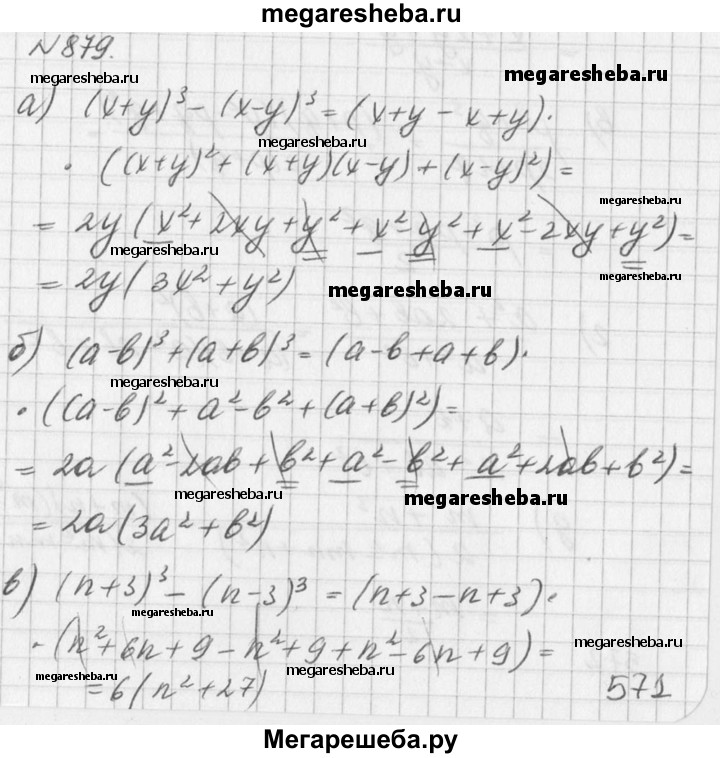 megaresheba.ru
№879.
megaresheba.ru
megaresheba.ru
а) (x+y)³ - (x-y)³ = (x+y - x+y)·
megaresheba.ru
· ((x+y)² + (x+y)(x-y) + (x-y)²) =
megaresheba.ru
= 2y (x² + 2xy + y² + x² - y² + x² - 2xy + y²) =
megaresheba.ru
megaresheba.ru
= 2y (3x² + y²)
megaresheba.ru
б) (a-b)³ + (a+b)³ = (a-b+a+b)·
megaresheba.ru
· ((a-b)² + a² - b² + (a+b)²) =
= 2a (a² - 2ab + b² + a² - b² + a² + 2ab + b²) =
megaresheba.ru
megaresheba.ru
= 2a (3a² + b²)
в) (n+3)³ - (n-3)³ = (n+3-n+3)·
megaresheba.ru
· (n² + 6n + 9 - n² + 9 + n² - 6n + 9) =
megaresheba.ru
megaresheba.ru
megaresheba.ru
= 6(n² + 27)
571
Мегарешеба.ру